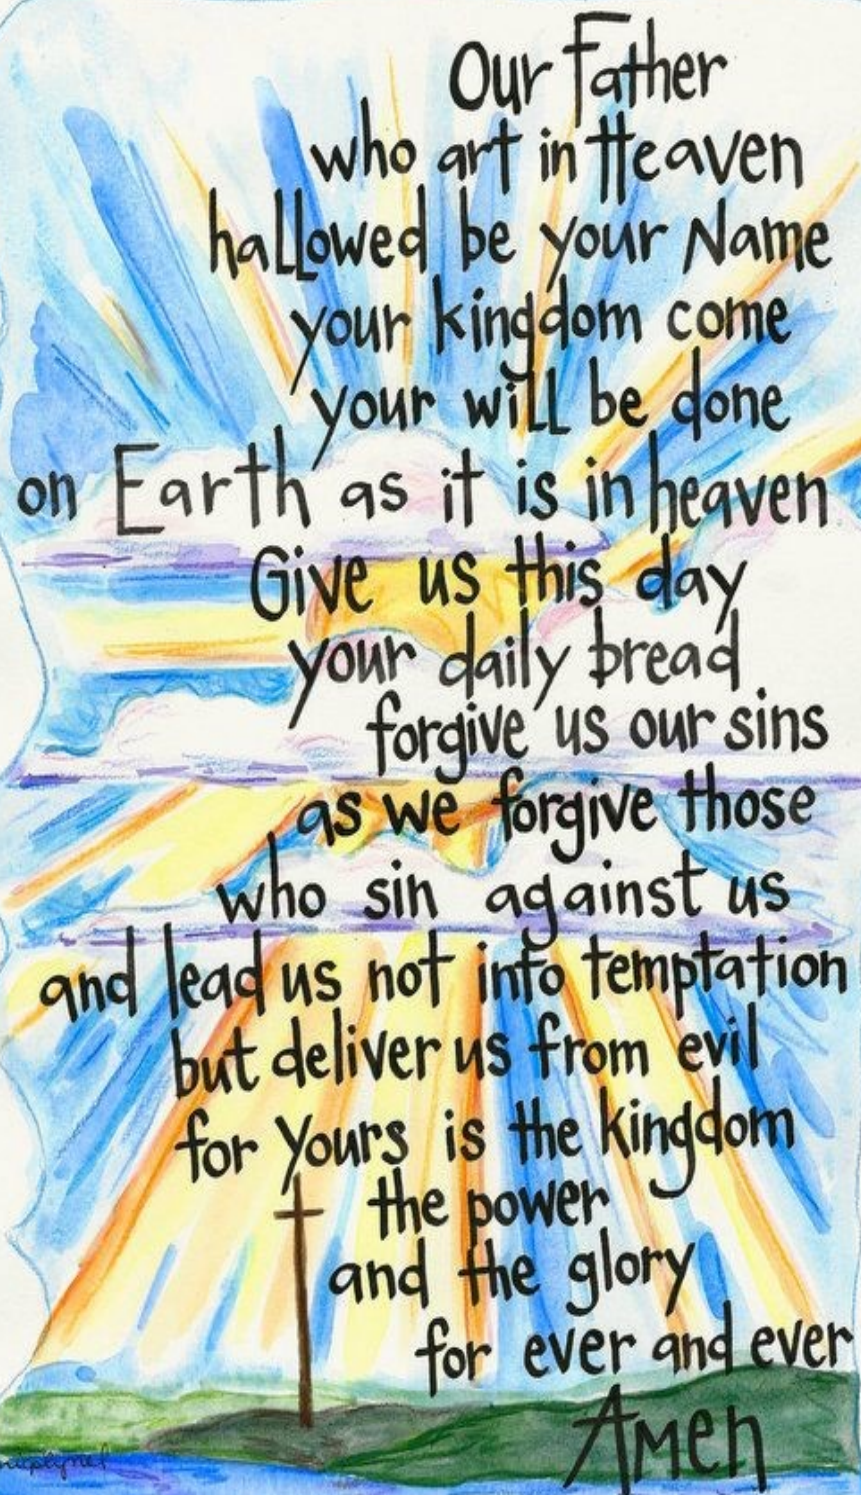 Our Father
who art in Heaven
hallowed be your Name
your kingdom come
your will be done
on Earth as it is in heaven
Give us this day
your daily bread
forgive us our sins
as we forgive those
who sin against us
and lead us not into temptation
but deliver us from evil
for yours is the kingdom
the power
and the glory
for ever and ever
Amen